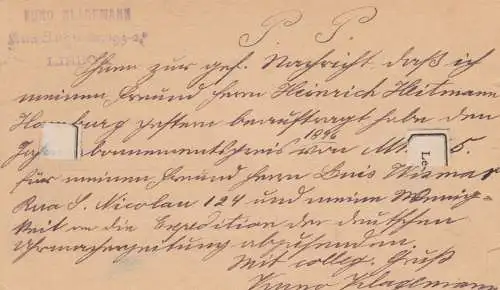 KUNO KLAGEMANN
LISBOA
P. P.
Ihnen zur gef. Nachricht daß ich
meinen Freund Herrn Heinrich Heitmann
Hamburg gestern beauftragt habe den
bonnementspreis von M. 5.
1896
für meinen Freund Herrn Luis Wismer
Rua S. Nicolau 124 und meine Wenig-
keit an die Expedition der deutschen
Uhrmacherzeitung abzusenden.
Mit colleg. Gruß
Kuno Klagemann
Le